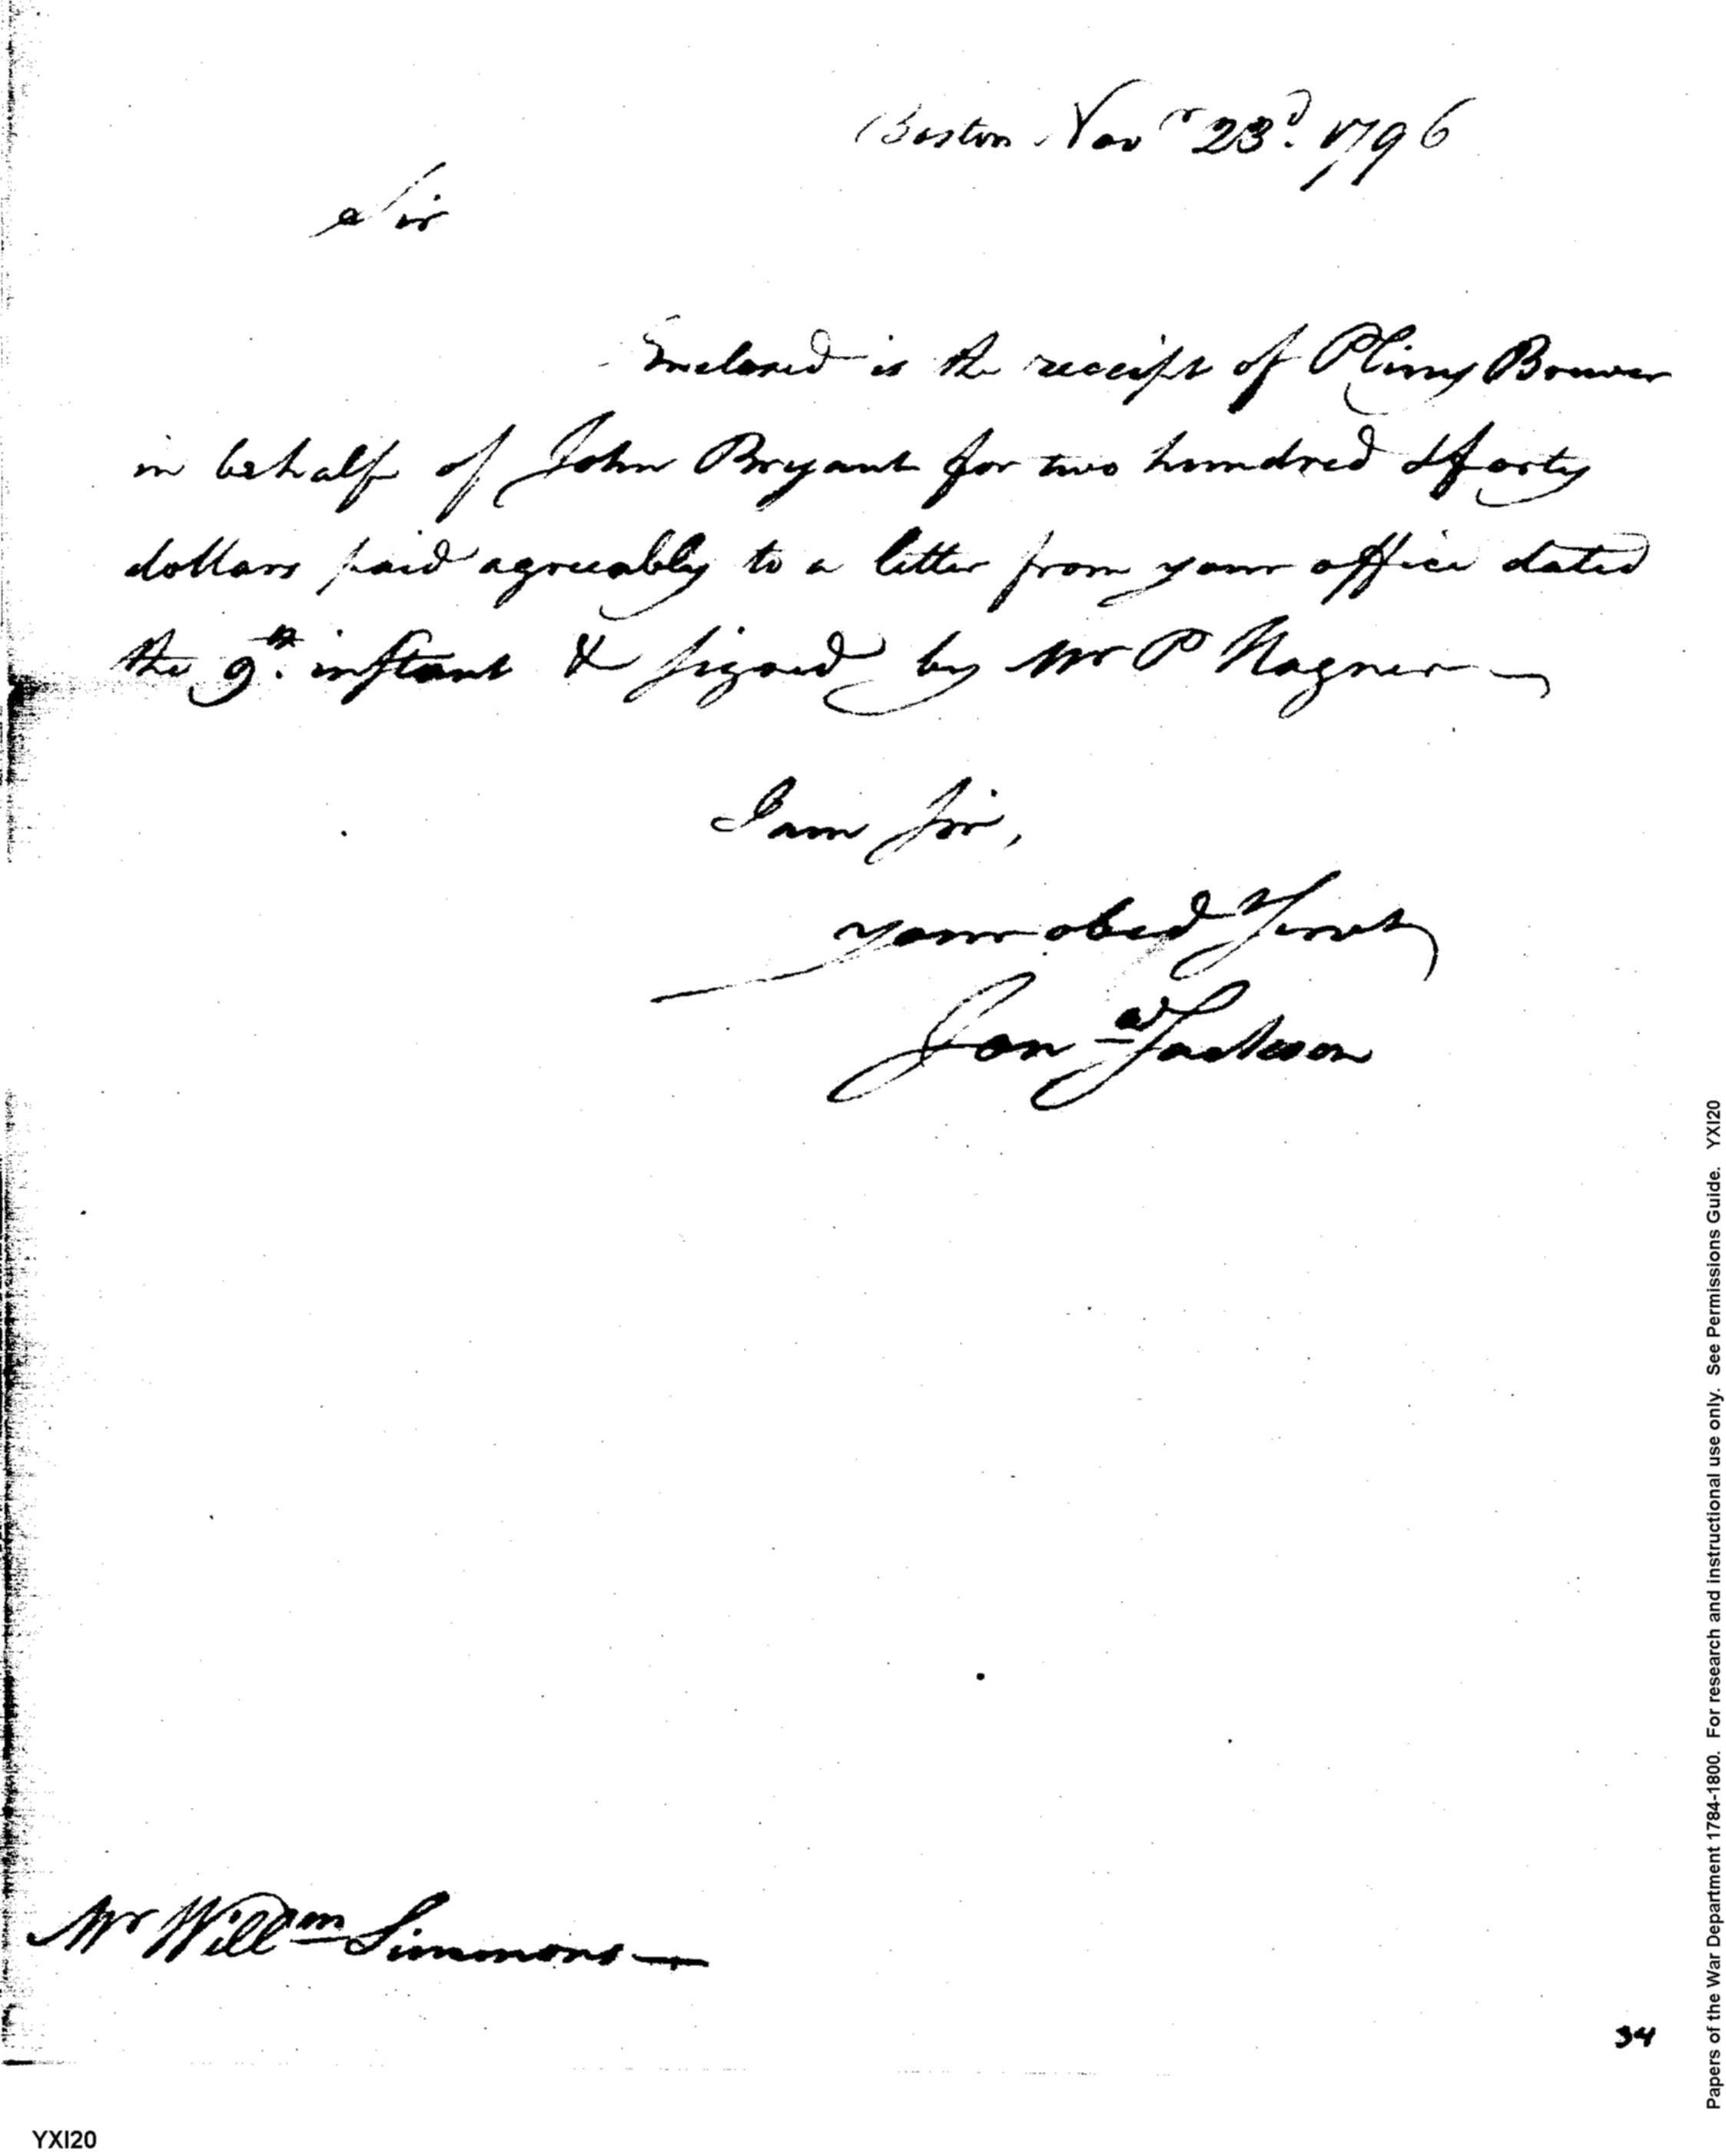 Boston Novr 23d. 1796
Sir
Enclosed is the receipt of Pliny Brower
in behalf of John Bryant for two hundred & forty
dollars paid agreeably to a letter from your office dated
the 9th. instant & signed by Mr P Hagner
I am Sir,
your obed Servt
Jona Jackson
Mr Willm Simmons
34
YXI20
Papers of the War Department 1784-1800. For research and instructional use only. See Permissions Guide. YXI20